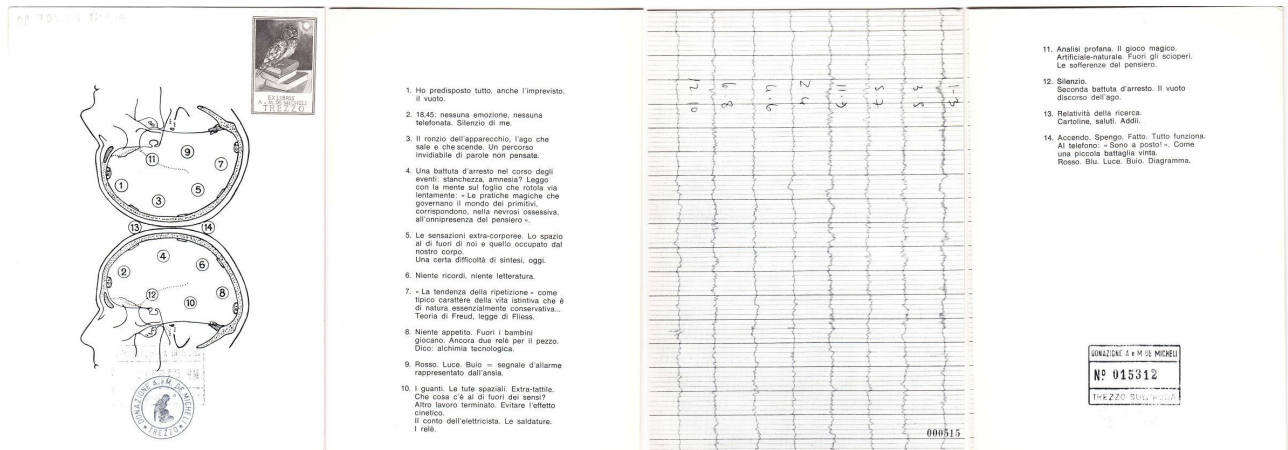 EX LIBRIS
A. e M. DE MICHELI
TREZZO
11
9
7
1
5
3
13
14
4
2
6
12
8
10
DONAZIONE A. e M. DE MICHELI
TREZZO
1. Ho predisposto tutto, anche l'imprevisto,
il vuoto.
2. 18,45: nessuna emozione, nessuna
telefonata. Silenzio di me.
3. Il ronzio dell'apparecchio, l'ago che
sale e che scende. Un percorso
invidiabile di parole non pensate.
4. Una battuta d'arresto nel corso degli
eventi: stanchezza, amnesia? Leggo
con la mente sul foglio che rotola via
lentamente: « Le pratiche magiche che
governano il mondo dei primitivi,
corrispondono, nella nevrosi ossessiva,
all'onnipresenza del pensiero ».
5. Le sensazioni extra-corporee. Lo spazio
al di fuori di noi e quello occupato dal
nostro corpo.
Una certa difficoltà di sintesi, oggi.
6. Niente ricordi, niente letteratura.
7. « La tendenza della ripetizione » come
tipico carattere della vita istintiva che è
di natura essenzialmente conservativa...
Teoria di Freud, legge di Fliess.
8. Niente appetito. Fuori i bambini
giocano. Ancora due relè per il pezzo.
Dico: alchimia tecnologica.
9. Rosso. Luce. Buio = segnale d'allarme
rappresentato dall'ansia.
10. I guanti. Le tute spaziali. Extra-tattile.
Che cosa c'è al di fuori dei sensi?
Altro lavoro terminato. Evitare l'effetto
cinetico.
Il conto dell'elettricista. Le saldature.
I relè.
12-10
6-8
4-6
2-4
11-9
5-7
3-5
1-3
000515
11. Analisi profana. Il gioco magico.
Artificiale-naturale. Fuori gli scioperi.
Le sofferenze del pensiero.
12. Silenzio.
Seconda battuta d'arresto. Il vuoto
discorso dell'ago.
13. Relatività della ricerca.
Cartoline, saluti. Addii.
14. Accendo. Spengo. Fatto. Tutto funziona.
Al telefono: « Sono a posto! ». Come
una piccola battaglia vinta.
Rosso. Blu. Luce. Buio. Diagramma.
DONAZIONE A e M DE MICHELI
Nº 015312
TREZZO SULL'ADDA